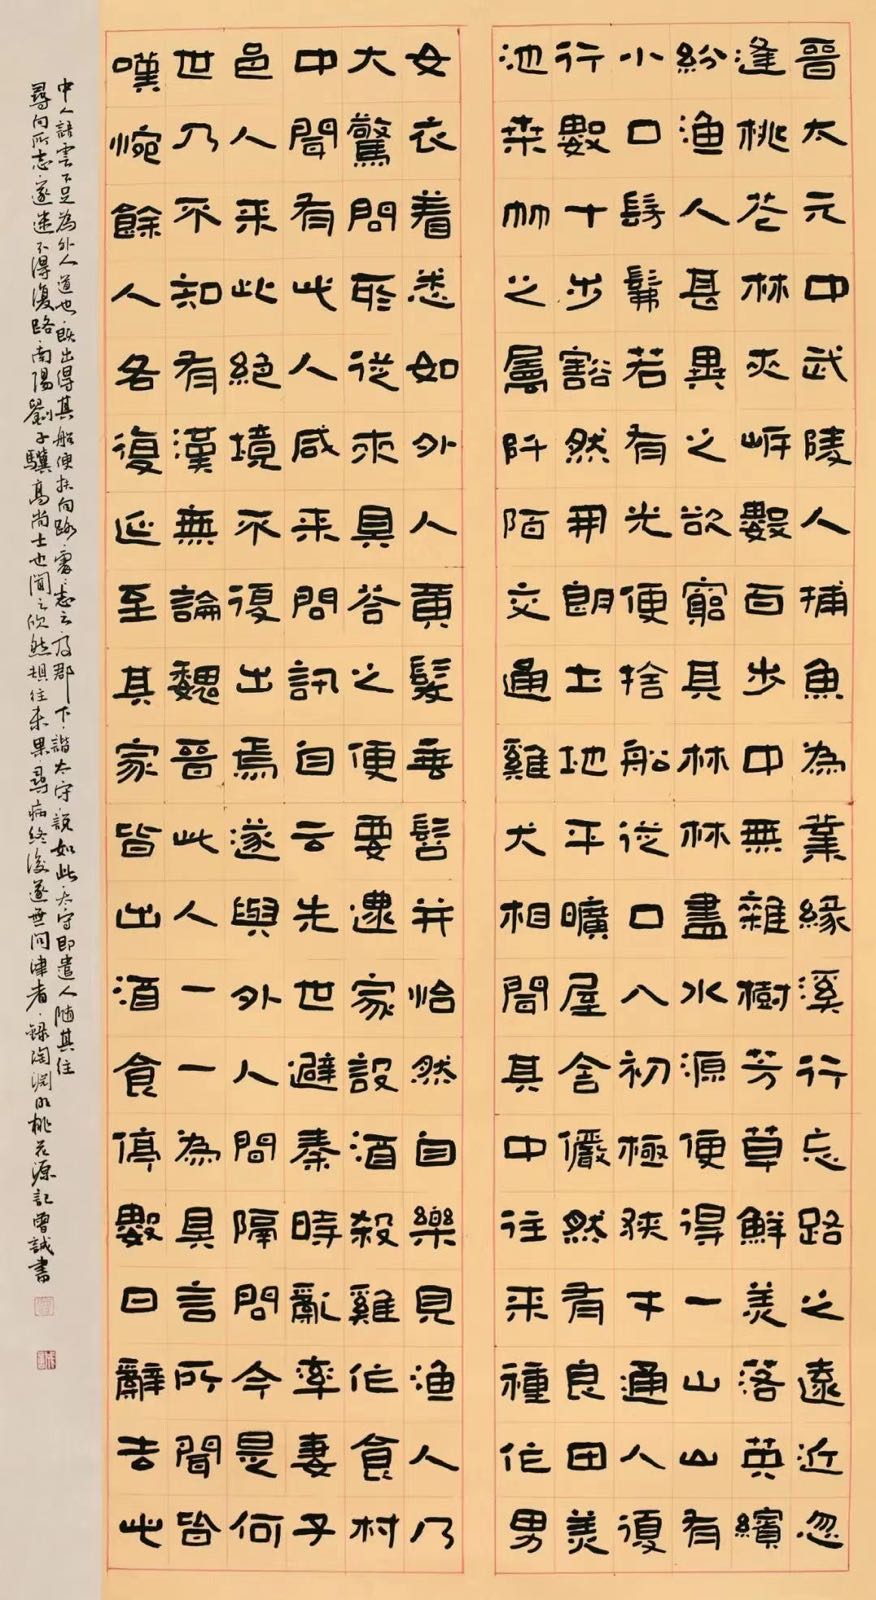 晉太元中武陵人捕魚為業緣溪行忘路之遠近忽
逢桃花林夾岸數百步中無雜樹芳草鮮美落英繽
紛渔人甚異之欲窮其林林盡水源便得一山山有
小口髣髴若有光便捨船從口入初極狹才通人復
行數十步豁然開朗土地平曠屋舍儼然有良田美
池桑竹之屬阡陌交通雞犬相聞其中往來種作男
女衣着悉如外人黃髮垂髫并怡然自樂見渔人乃
大驚問所從來具答之便要還家設酒殺雞作食村
中聞有此人咸來問訊自云先世避秦時亂率妻子
邑人來此絕境不復出焉遂與外人間隔問今是何
世乃不知有漢無論魏晉此人一一為具言所聞皆
嘆惋餘人各復延至其家皆出酒食停數日辭去此
中人語雲不足為外人道也既出得其船便扶向路處處志之及郡下詣太守說如此太守即遣人隨其往
尋向所志遂迷不得復路南陽劉子驥高尚士也聞之欣然規往未果尋病終後遂無問津者錄陶淵明桃花源記曾誠書